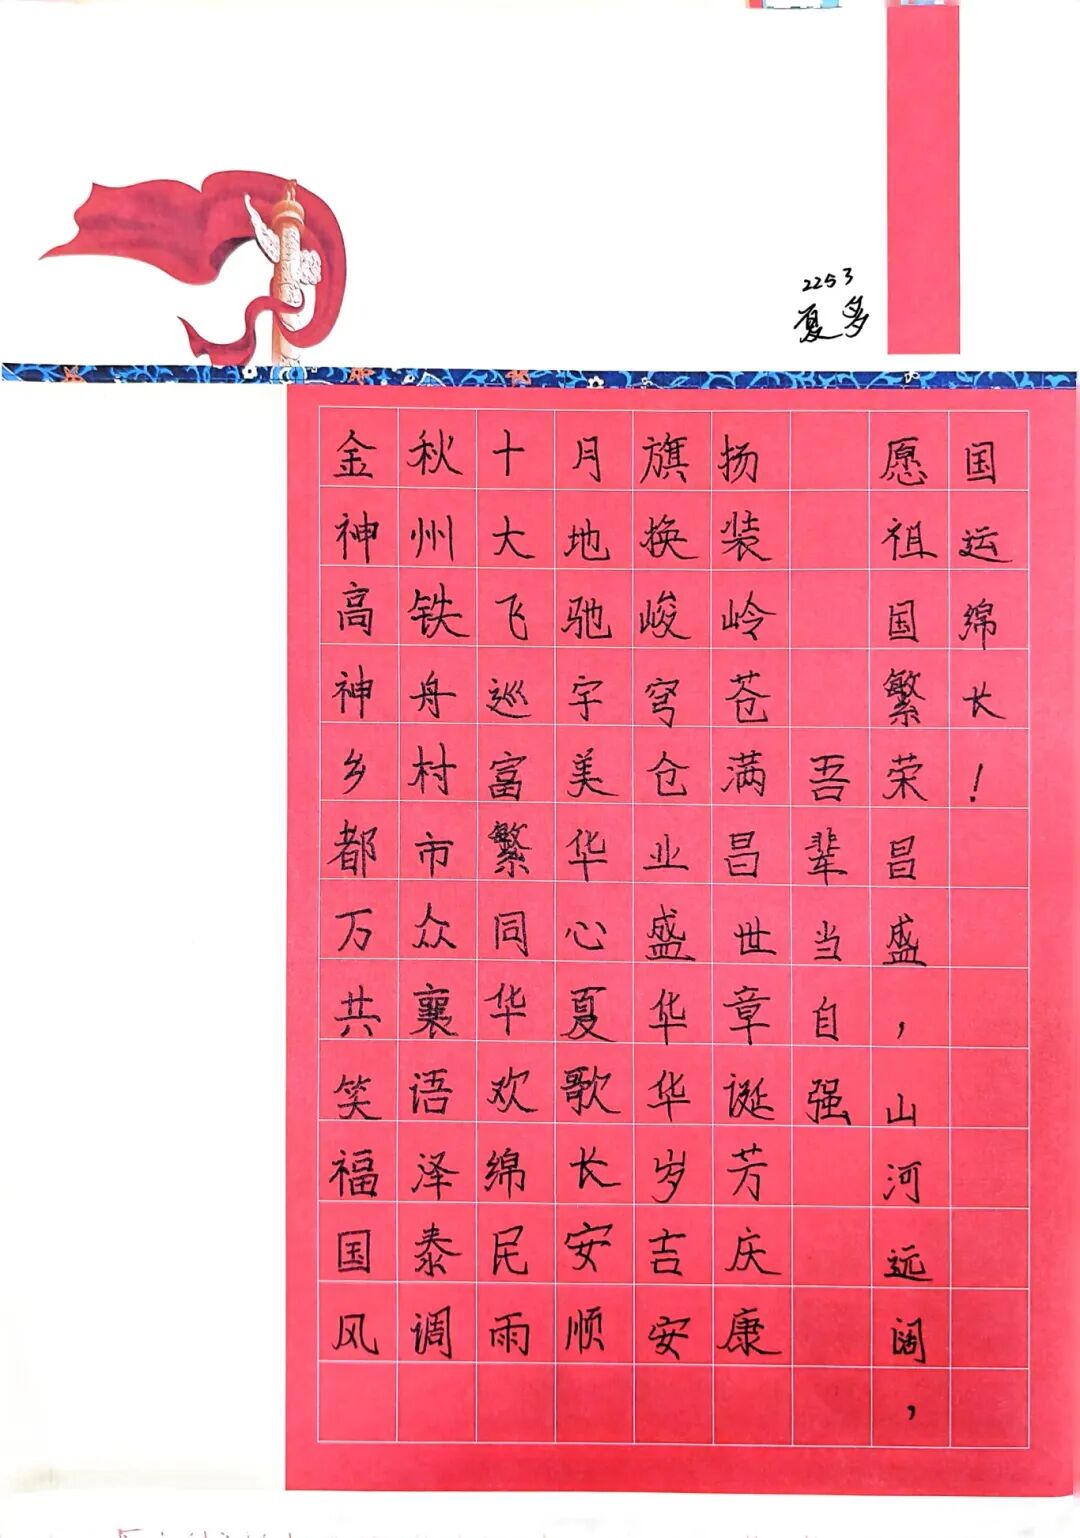 2253
夏多
金秋十月旗扬
神州大地换装
高铁飞驰峻岭
神舟巡宇穹苍
乡村富美仓满
都市繁华业昌
万众同心盛世
共襄华夏华章
笑语欢歌华诞
福泽绵长岁芳
国泰民安吉庆
风调雨顺安康
吾辈当自强
愿祖国繁荣昌盛，山河远阔，
国运绵长！